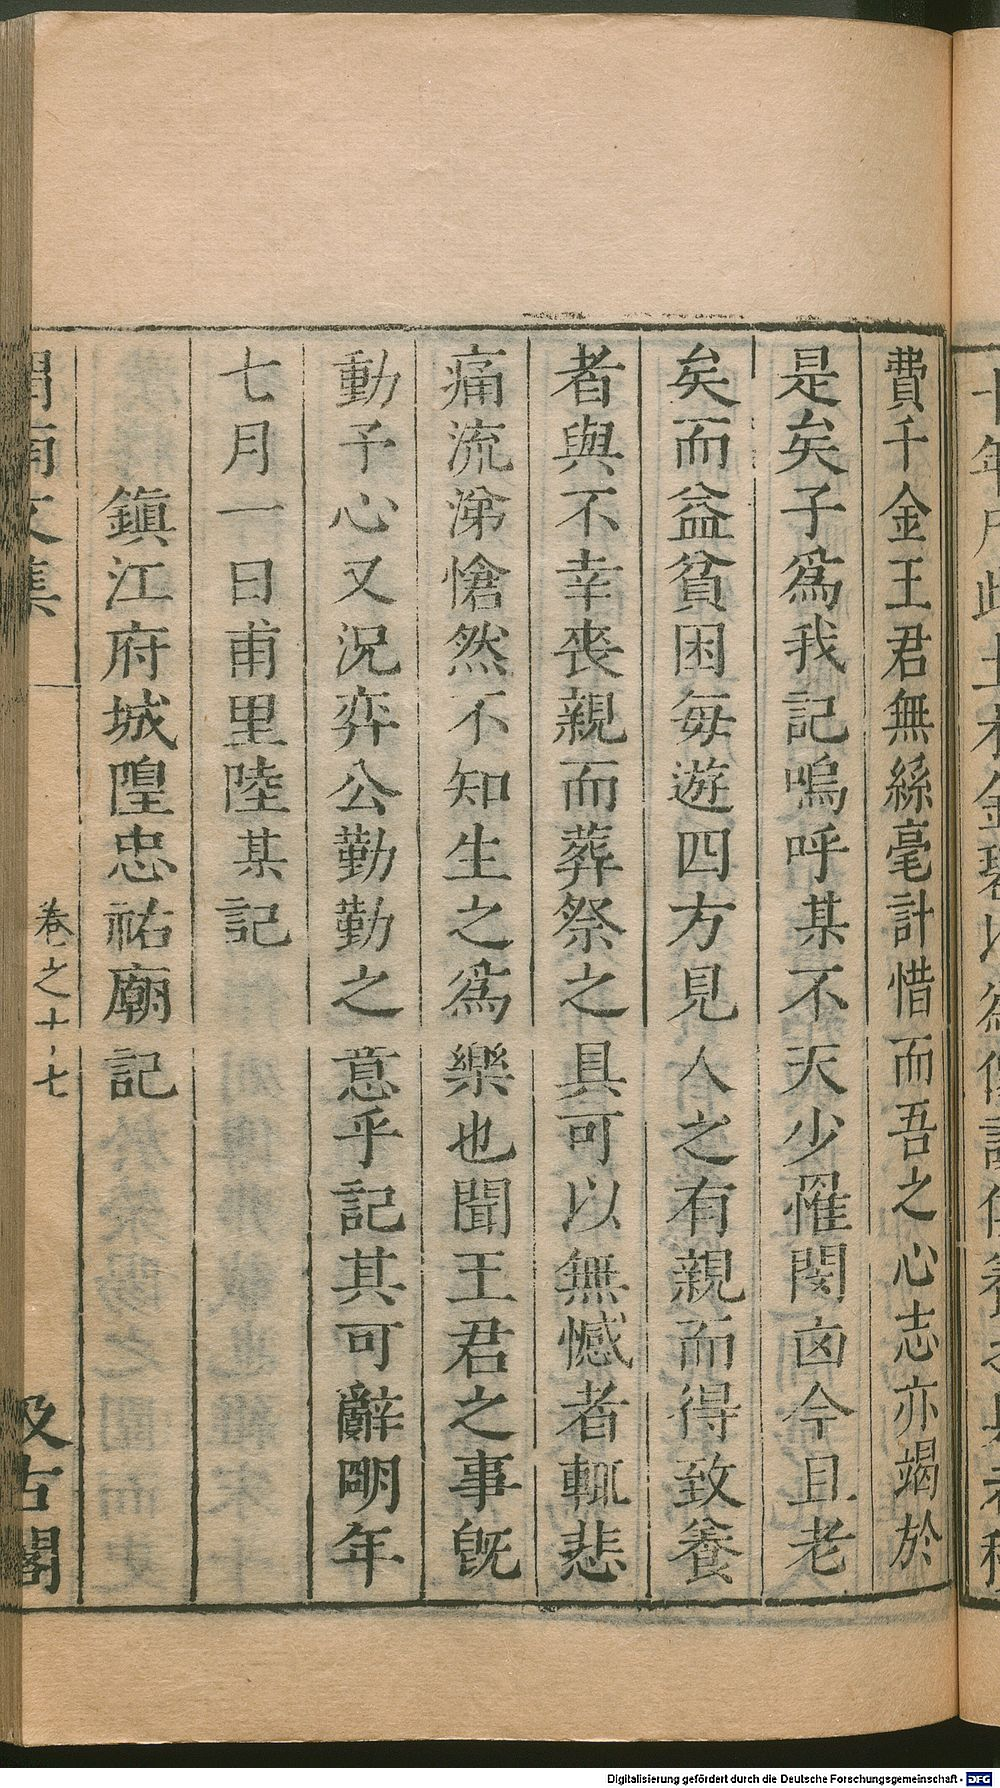 費千金王君無絲毫計惜而吾之心志亦竭於
是矣子爲我記嗚呼某不天少罹閔凶今且老
矣而益貧困每遊四方見人之有親而得致養
者與不幸喪親而葬祭之具可以無憾者輒悲
痛流涕愴然不知生之爲樂也聞王君之事旣
動予心又況弈公勤勤之意乎記其可辭明年
七月一日甫里陸某記
鎮江府城隍忠祐廟記
渭南文集
卷之十七
汲古閣
Digitalisierung gefördert durch die Deutsche Forschungsgemeinschaft - DFG